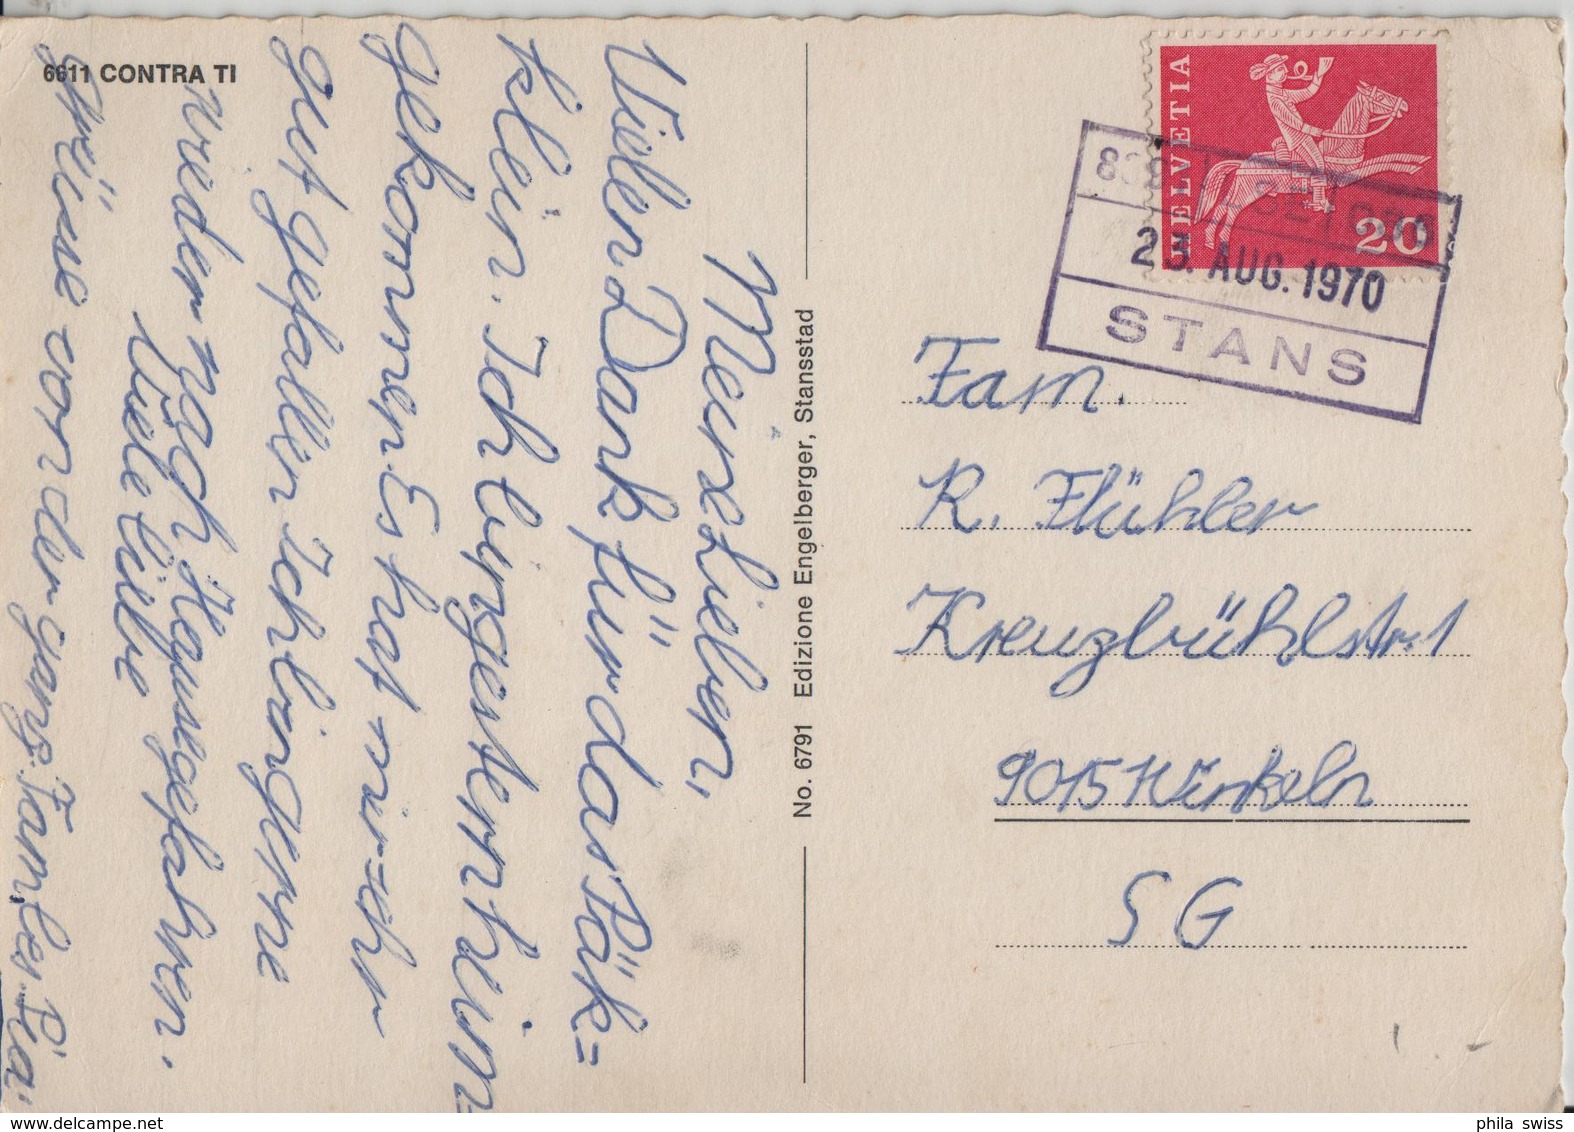 6611 CONTRA TI
Meine Lieben,
Vielen Dank für das Päk=
klein. Ich bin gestern heim
gekommen Es hat mir sehr
gut gefallen Ich bin gerne
wieder nach Hause gefahren.
Viele liebe
Grüsse von der ganz. Fam. Pia.
No. 6791 Edizione Engelberger, Stansstad
HELVETIA
20
23. AUG. 1970
STANS
Fam.
R. Flühler
Kreuzbühlstr. 1
9015 Winkeln
SG
phila swiss